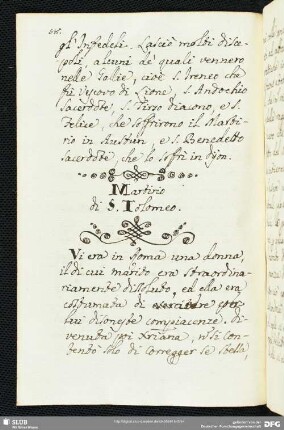 gl'Infedeli. Lasciò molti disce-
poli, alcuni de' quali vennero
nelle Gallie, cioè S. Ireneo che
fù Vescovo di Lione, S. Andochio
Sacerdote, S. Tirso Diacono, e S.
Felice, che soffrirono il Marti-
rio in Autun, e S. Benedetto
Sacerdote, che lo soffrì in Dijon.
Martirio
di S. Tolomeo.
Vi era in Roma una donna,
il di cui marito era straordina-
riamente dissoluto, ed ella era
costumata di
lui disoneste compiacenze. Di-
venuta poi Xriana, nõ si con-
tentò solo di corregger se stessa,
SLUB
DFG